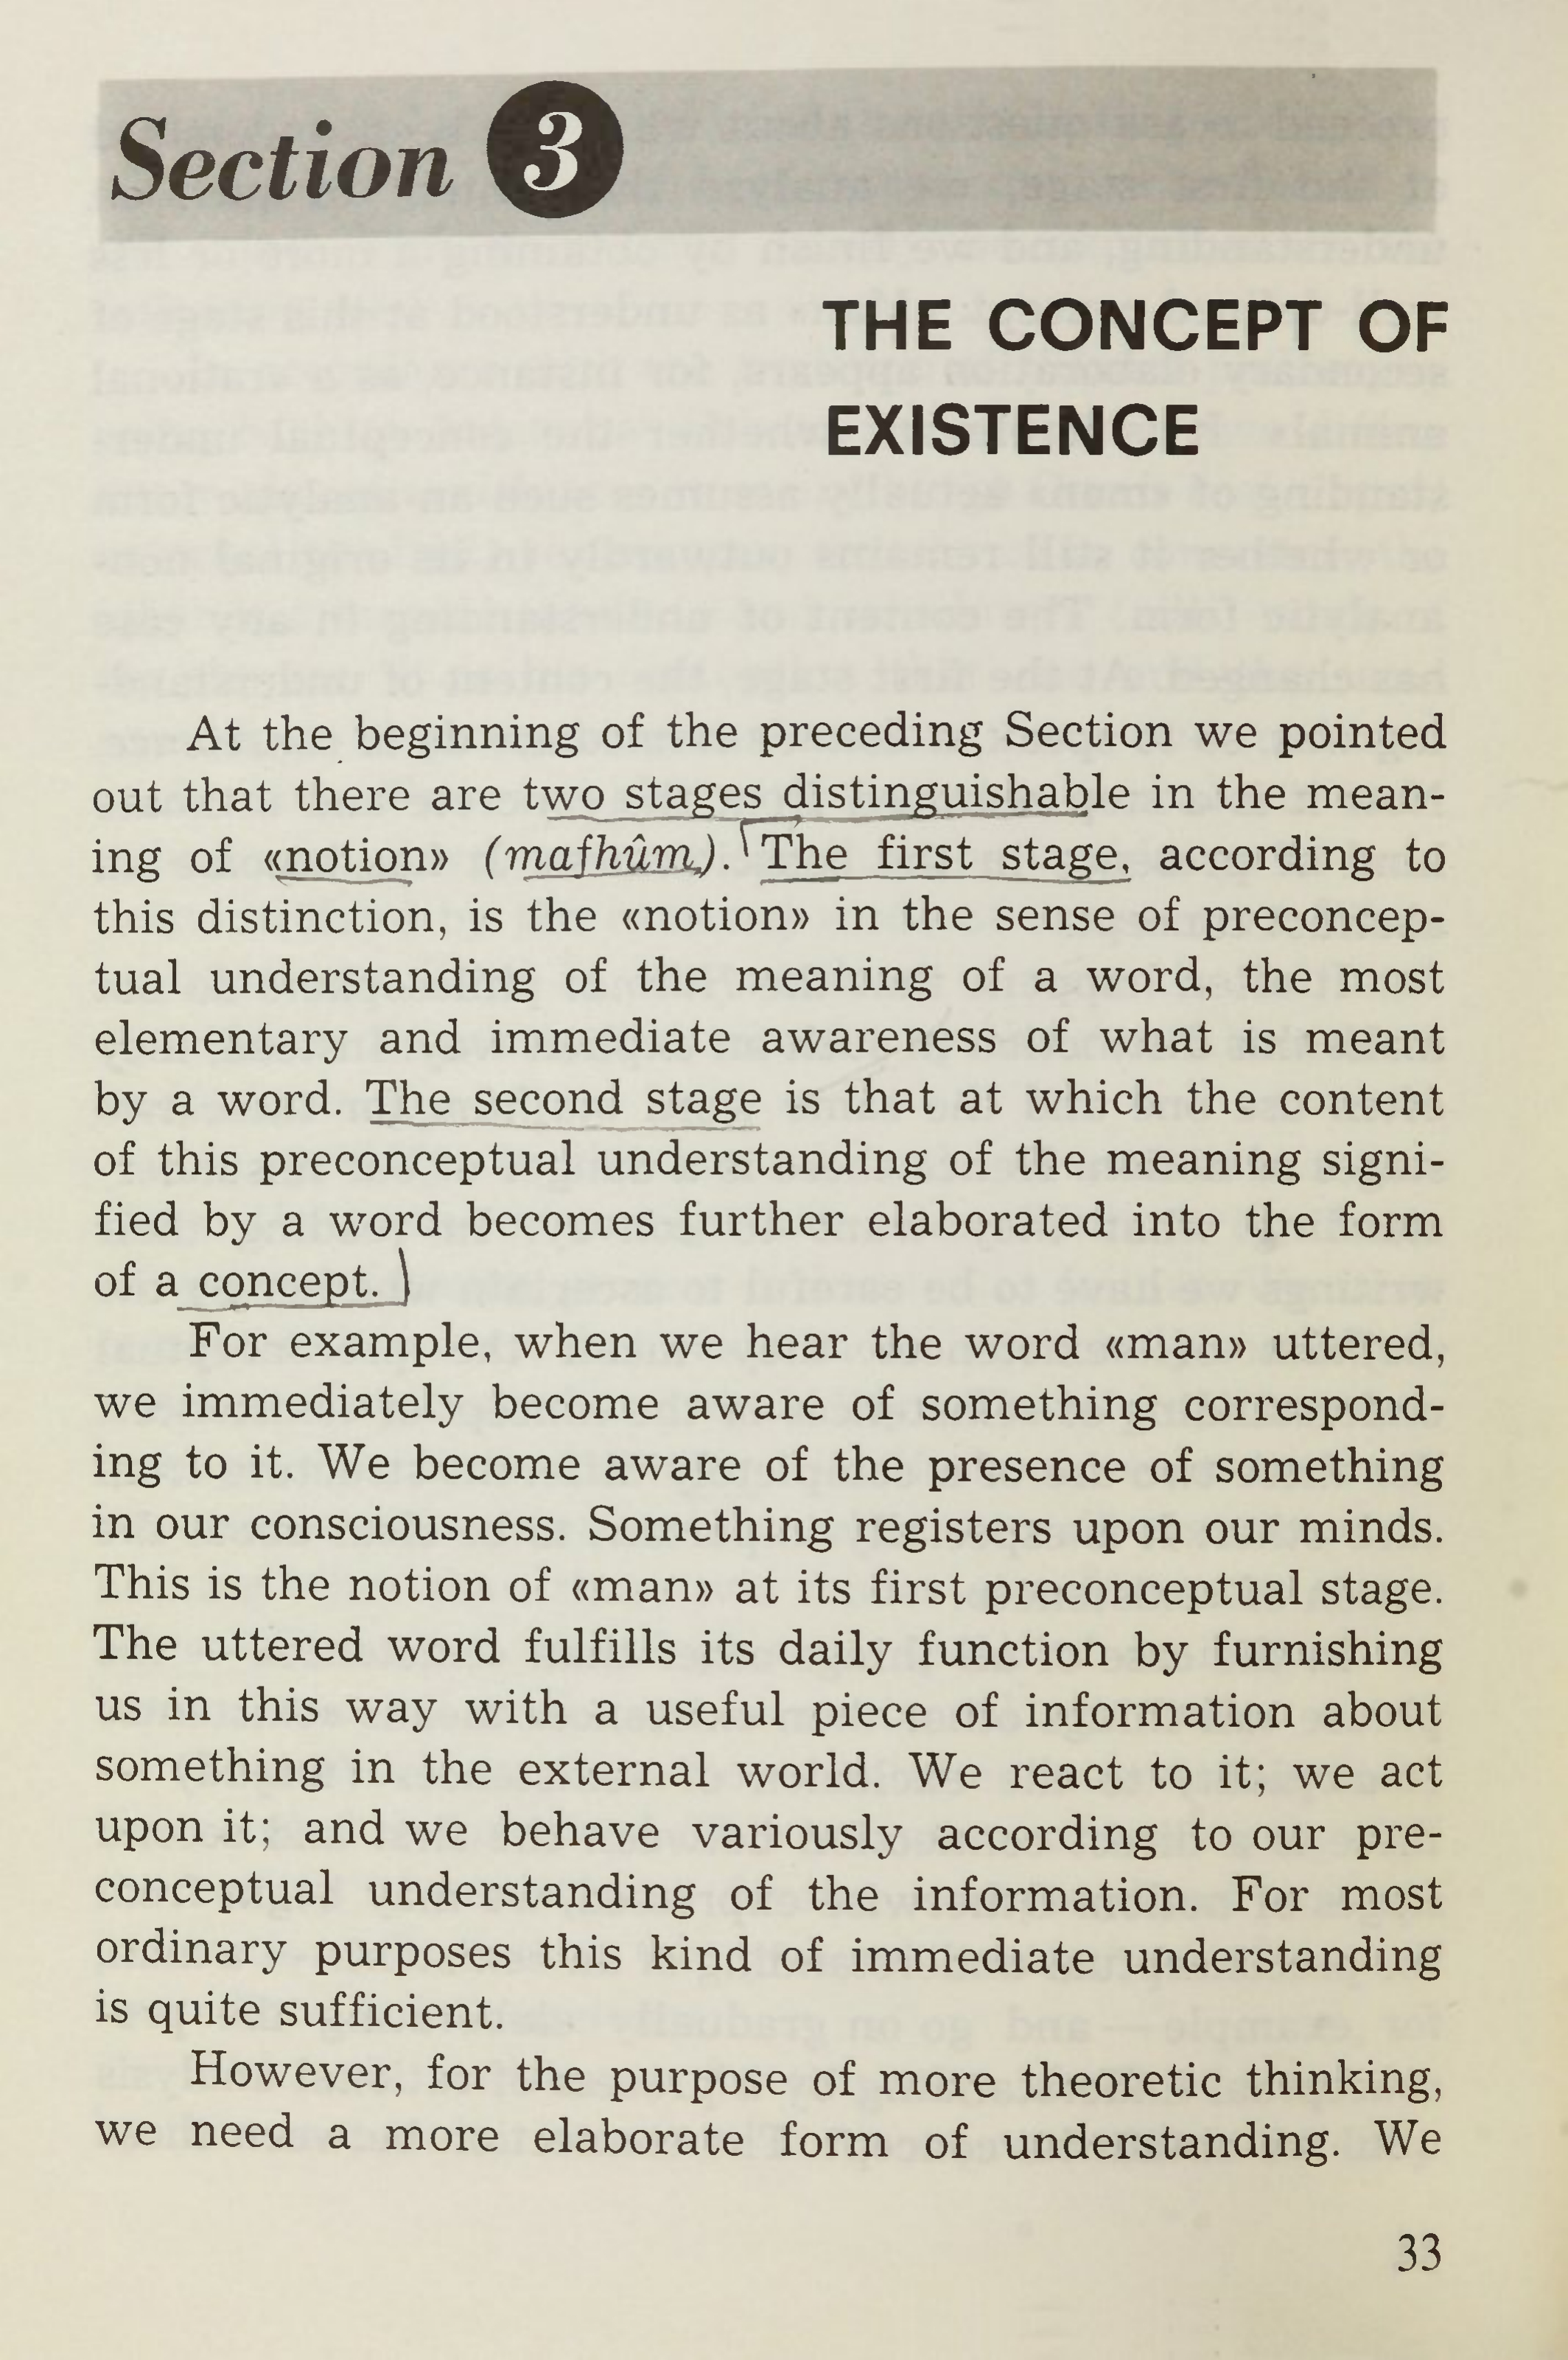 Section 3
THE CONCEPT OF
EXISTENCE
At the beginning of the preceding Section we pointed
out that there are two stages distinguishable in the mean-
ing of «notion» (mafhûm). The first stage, according to
this distinction, is the «notion» in the sense of preconcep-
tual understanding of the meaning of a word, the most
elementary and immediate awareness of what is meant
by a word. The second stage is that at which the content
of this preconceptual understanding of the meaning signi-
fied by a word becomes further elaborated into the form
of a concept.
For example, when we hear the word «man» uttered,
we immediately become aware of something correspond-
ing to it. We become aware of the presence of something
in our consciousness. Something registers upon our minds.
This is the notion of «man» at its first preconceptual stage.
The uttered word fulfills its daily function by furnishing
us in this way with a useful piece of information about
something in the external world. We react to it; we act
upon it; and we behave variously according to our pre-
conceptual understanding of the information. For most
ordinary purposes this kind of immediate understanding
is quite sufficient.
However, for the purpose of more theoretic thinking,
we need a more elaborate form of understanding. We
33